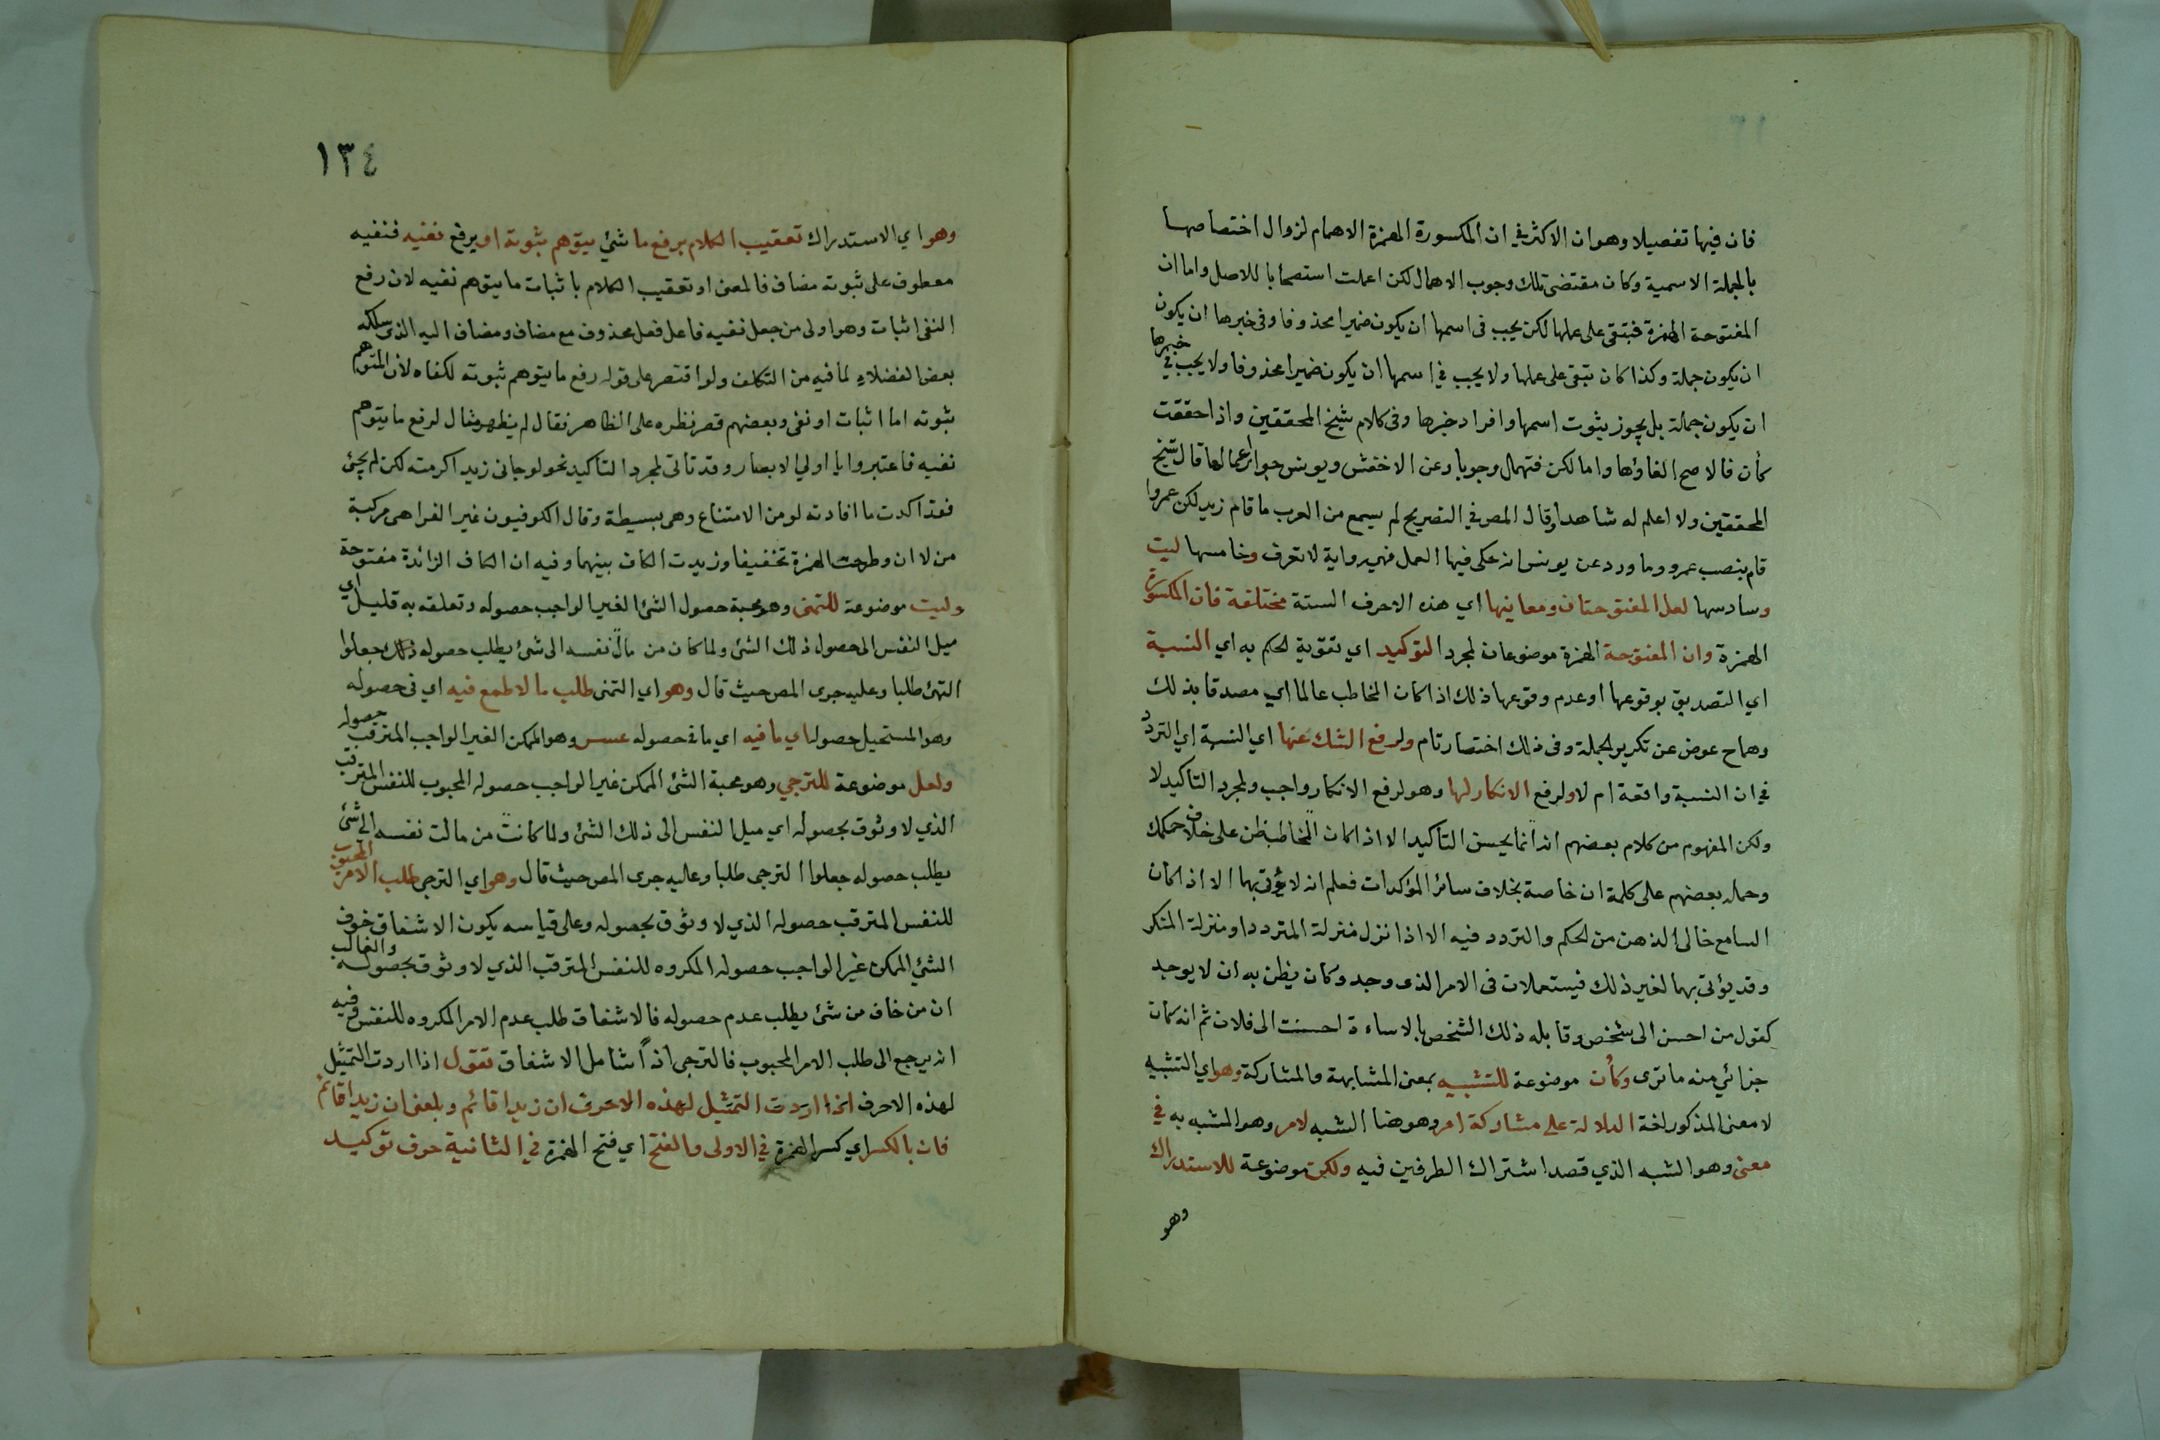 فان فيها تفصيلا وهو ان الاكثر في ان المكسورة الهمزة الاهمام لزوال اختصاصها
بالجملة الاسمية وكان مقتضى تلك وجوب الاهمال لكن اعملت استصحابا للاصل واما ان
المفتوحة الهمزة فتبقى على عملها لكن يجب فى اسمها ان يكون ضميرا محذوفا وفى خبرها ان يكون
ان يكون جملة وكذا كان تبقى على عملها ولا يجب في اسمها ان يكون ضميرا محذوفا ولا يجب في خبرها
ان يكون جملة بل يجوز ثبوت اسمها وافراد خبرها وفى كلام شيخ المحققين واذا حققت
كأن فالاصح الغاؤها واما لكن فتهمل وجوبا وعن الاخفش ويونس جواز اعمالها قال شيخ
المحققين ولا اعلم له شاهدا وقال المص في التصريح لم يسمع من العرب ما قام زيد لكن عمروا
قام بنصب عمرو وما ورد عن يونس انه حكى فيها العمل فهي رواية لا تعرف وخامسها ليت
وسادسها لعل المفتوحتان ومعانيها اي هذه الاحرف الستة مختلفة فان المكسورة
الهمزة وان المفتوحة الهمزة موضوعان لمجرد التوكيد اي تقوية الحكم به اي النسبة
اي التصديق بوقوعها او عدم وقوعها ذلك اذا كان المخاطب عالما اي مصدقا بذلك
وهما ح عوض عن تكرير الجملة وفى ذلك اختصار تام ولرفع الشك عنها اي النسبة اي التردد
في ان النسبة واقعة ام لا ولرفع الانكار لها وهو لرفع الانكار واجب ولمجرد التاكيد لا
ولكن المفهوم من كلام بعضهم انه انما يحسن التاكيد الا اذا كان للمخاطب ظن على خلاف حكمك
وحمله بعضهم على كلمة ان خاصة بخلاف سائر المؤكدات فعلم انه لا يؤتى بها الا اذا كان
السامع خالى الذهن من الحكم والتردد فيه الا اذا نزل منزلة المتردد او منزلة المنكر
وقد يؤتى بها لغير ذلك فيستعملان فى الامر الذى وجد وكان يظن به ان لا يوجد
كقول من احسن الى شخص وقابله ذلك الشخص بالاساءة احسنت الى فلان ثم انه كان
جزائي منه ما ترى وكأن موضوعة للتشبيه بمعنى المشابهة والمشاركة وهو اي التشبيه
لا معنى المذكور لغة الدلالة على مشاركة امر وهو هنا الشبه لامر وهو المشبه به في
معنى وهو الشبه الذي قصد اشتراك الطرفين فيه ولكن موضوعة للاستدراك
وهو
١٣٤
وهو اي الاستدراك تعقيب الكلام برفع ما شئ يتوهم ثبوته او يرفع نفيه فنفيه
معطوف على ثبوته مضاف فالمعنى او تعقيب الكلام باثبات ما يتوهم نفيه لان رفع
النفى اثبات وهو اولى من جعل نفيه فاعل فعل محذوف مع مضاف ومضاف اليه الذى سلكه
بعض الفضلاء لما فيه من التكلف ولو اقتصر على قوله رفع ما يتوهم ثبوته لكفاه لان المتوهم
ثبوته اما اثبات او نفى وبعضهم قصر نظره على الظاهر فقال لم يظهر مثال لرفع ما يتوهم
نفيه فاعتبروا يا اولي الابصار وقد تاتى لمجرد التاكيد نحو لو جانى زيد اكرمته لكن لم يجئ
فقد اكدت ما افادته لو من الامتناع وهى بسيطة وقال الكوفيون غير الفراهى مركبة
من لا ان وطرحت الهمزة تخفيفا وزيدت الكاف بينهما وفيه ان الكاف الزائدة مفتوحة
وليت موضوعة للتمنى وهو محبة حصول الشئ الغير الواجب حصوله وتعلقه به قليل اي
ميل النفس الى حصول ذلك الشئ ولما كان من مال نفسه الى شئ يطلب حصوله ذلك جعلوا
التهئ طلبا وعليه جرى المص حيث قال وهو اي التمنى طلب ما لا طمع فيه اي فى حصوله
وهو المستحيل حصوله اي ما فيه اي ما فى حصوله عسر وهو الممكن الغير الواجب المترقب حصوله
ولعل موضوعة للترجي وهو محبة الشئ الممكن غير الواجب حصوله المحبوب للنفس المترقب
الذي لا وثوق بحصوله اي ميل النفس الى ذلك الشئ ولما كانت من مالت نفسه الى شئ
يطلب حصوله جعلوا الترجى طلبا وعليه جرى المص حيث قال وهو اي الترجى طلب الامر المحبوب
للنفس المترقب حصوله الذي لا وثوق بحصوله وعلى قياسه يكون الاشفاق خوف
الشئ الممكن غير الواجب حصوله المكروه للنفس المترقب الذي لا وثوق بحصوله والغالب
ان من خاف من شئ يطلب عدم حصوله فالاشفاق طلب عدم الامر المكروه للنفس فيه
انه يرجع الى طلب الامر المحبوب فالترجى اذاً شامل الاشفاق تقول اذا اردت التمثيل
لهذه الاحرف اذا اردت التمثيل لهذه الاحرف ان زيدا قائم وبلغنى ان زيدا قائم
فان بالكسر اي كسر الهمزة في الاولى والفتح اي فتح الهمزة في الثانية حرف توكيد